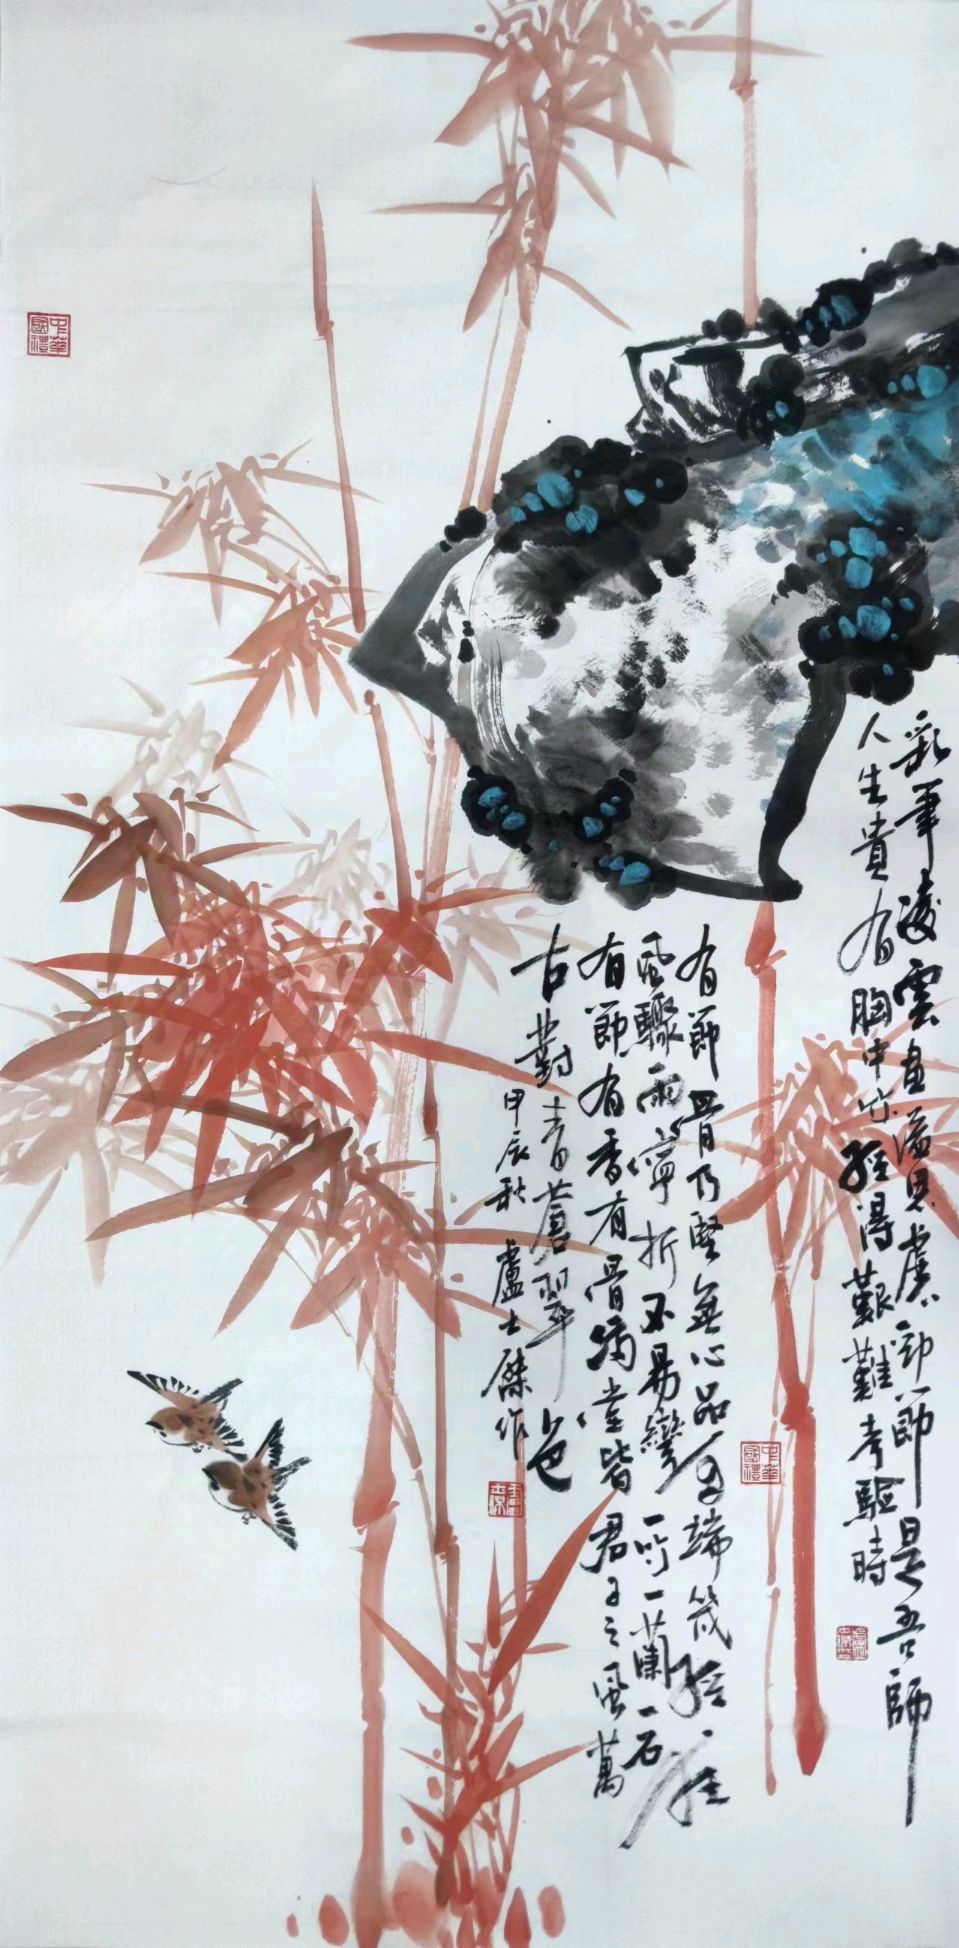 彩筆凌雲畫溢思虛心勁節是吾師
人生貴有胸中竹經得艱難考驗時
有節骨乃堅無心品自端幾經狂
風驟雨寧折不易彎一竹一蘭一石
有節有香有骨滿堂皆君子之風萬
古對青蒼翠色
甲辰秋盧士傑作
中華國禮
中華國禮